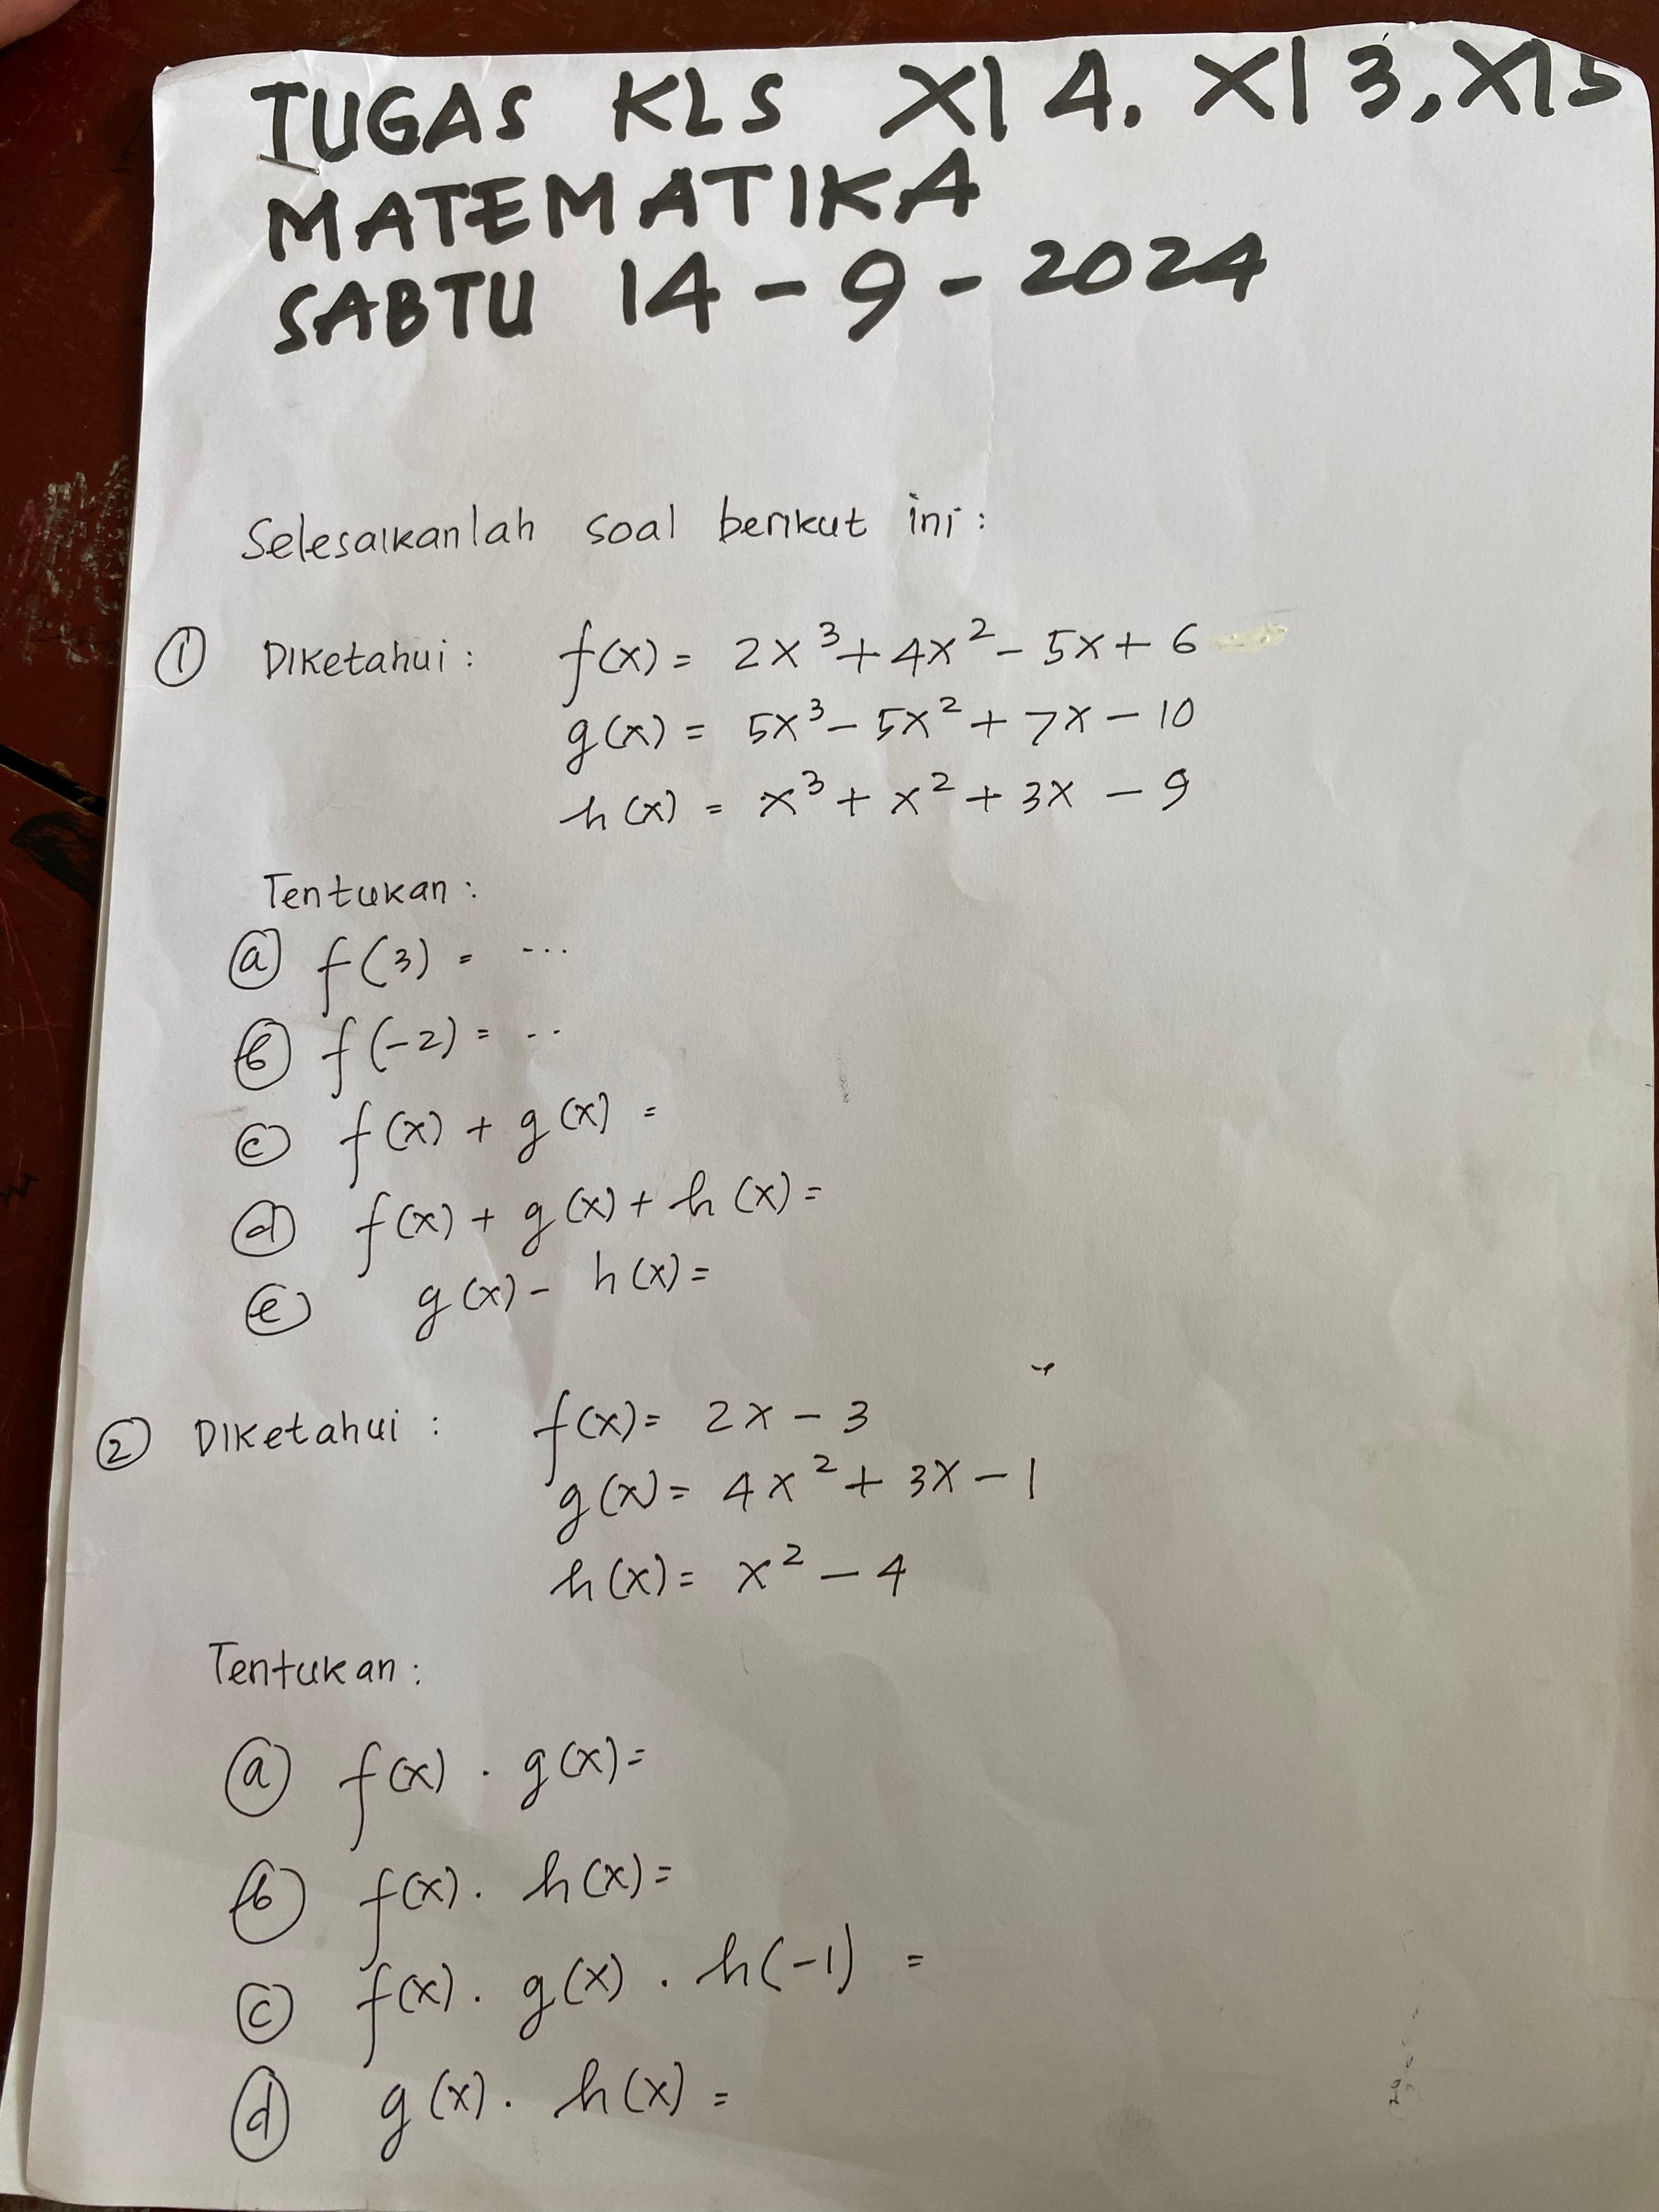 TUGAS KLS XI 4, XI 3, XI 5
MATEMATIKA
SABTU 14 - 9 - 2024
Selesaikanlah soal berikut ini :
① Diketahui : f(x) = 2x³ + 4x² - 5x + 6
g(x) = 5x³ - 5x² + 7x - 10
h(x) = x³ + x² + 3x - 9
Tentukan :
ⓐ f(3) = ...
ⓑ f(-2) = ...
ⓒ f(x) + g(x) =
ⓓ f(x) + g(x) + h(x) =
ⓔ g(x) - h(x) =
② Diketahui : f(x) = 2x - 3
g(x) = 4x² + 3x - 1
h(x) = x² - 4
Tentukan :
ⓐ f(x) . g(x) =
ⓑ f(x) . h(x) =
ⓒ f(x) . g(x) . h(-1) =
ⓓ g(x) . h(x) =